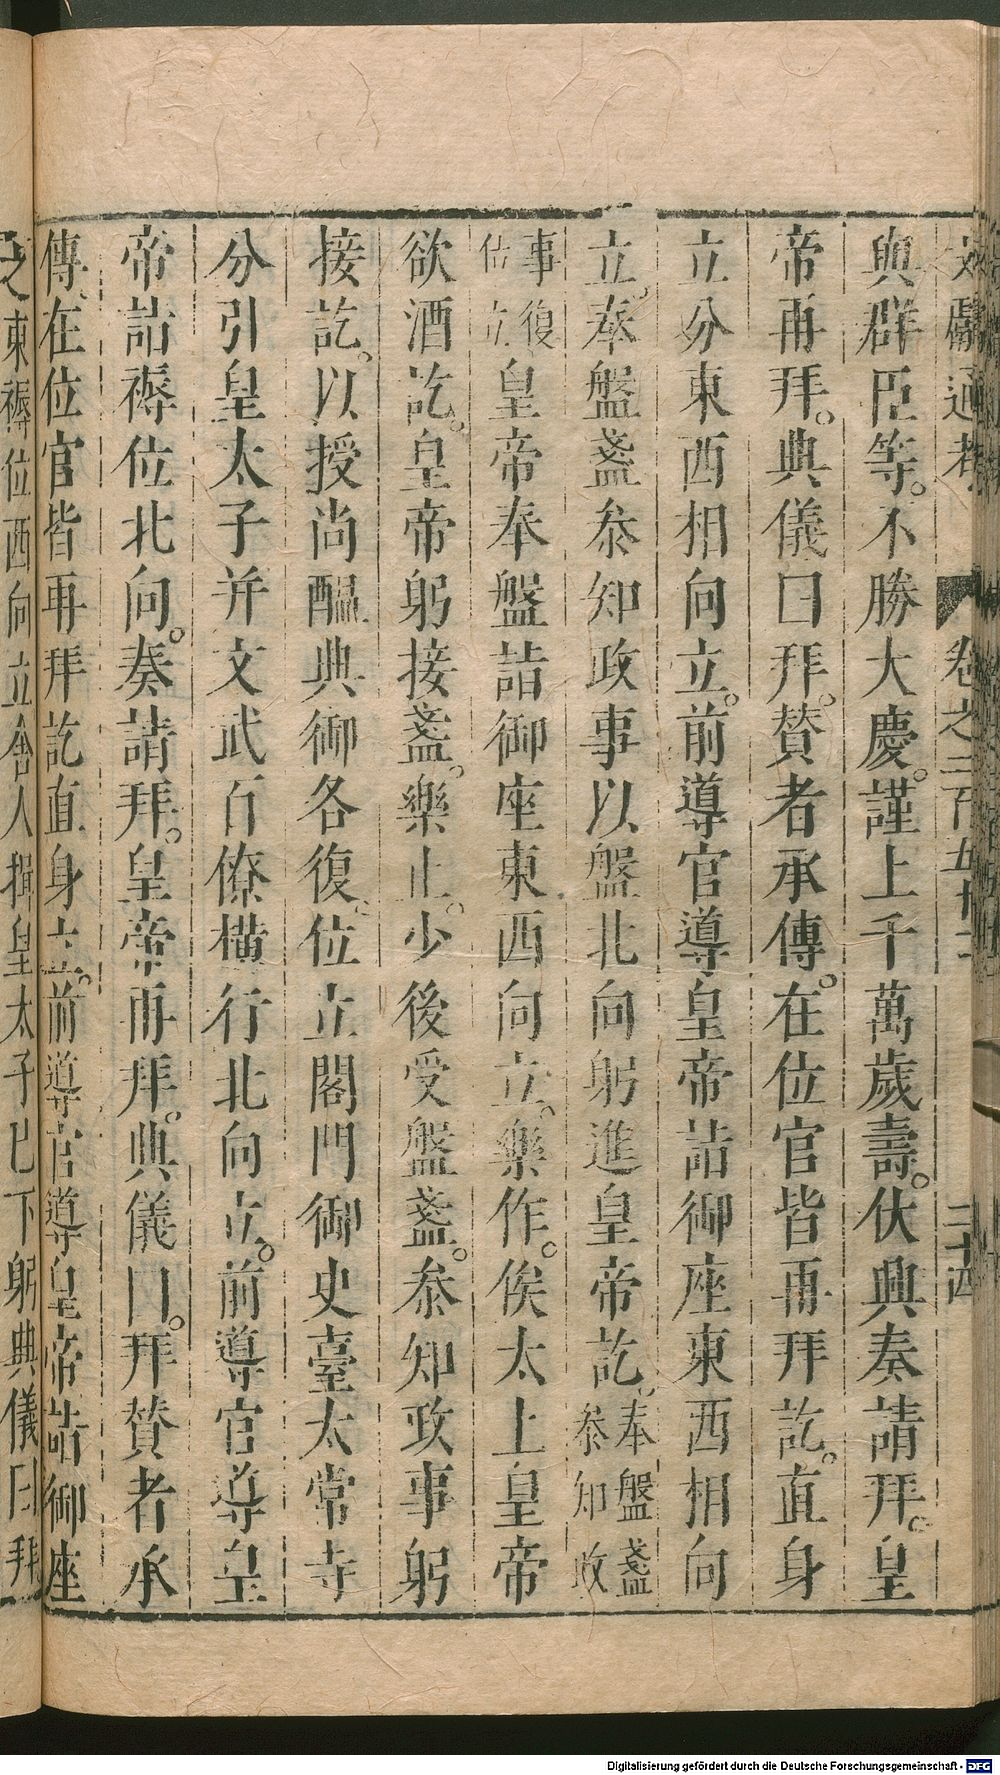 文獻通考 卷之二百五十二 三十四
與群臣等。不勝大慶。謹上千萬歲壽。伏興奏請拜。皇
帝再拜。典儀曰拜。贊者承傳。在位官皆再拜訖。直身
立分東西相向立。前導官導皇帝詣御座東西相向
立。奉盤盞叅知政事以盤北向躬進皇帝訖。奉盤盞叅知政
事復位立皇帝奉盤詣御座東西向立。樂作。俟太上皇帝
飲酒訖。皇帝躬接盞。樂止。少後受盤盞。叅知政事躬
接訖。以授尚醞典御各復。位立閣門御史臺太常寺
分引皇太子并文武百僚橫行北向立。前導官導皇
帝詣褥位北向。奏請拜。皇帝再拜。典儀曰。拜贊者承
傳、在位官皆再拜訖直身立。前導官導皇帝詣御座
之東褥位西向立舍人揖皇太子已下躬典儀曰拜
Digitalisierung gefördert durch die Deutsche Forschungsgemeinschaft - DFG